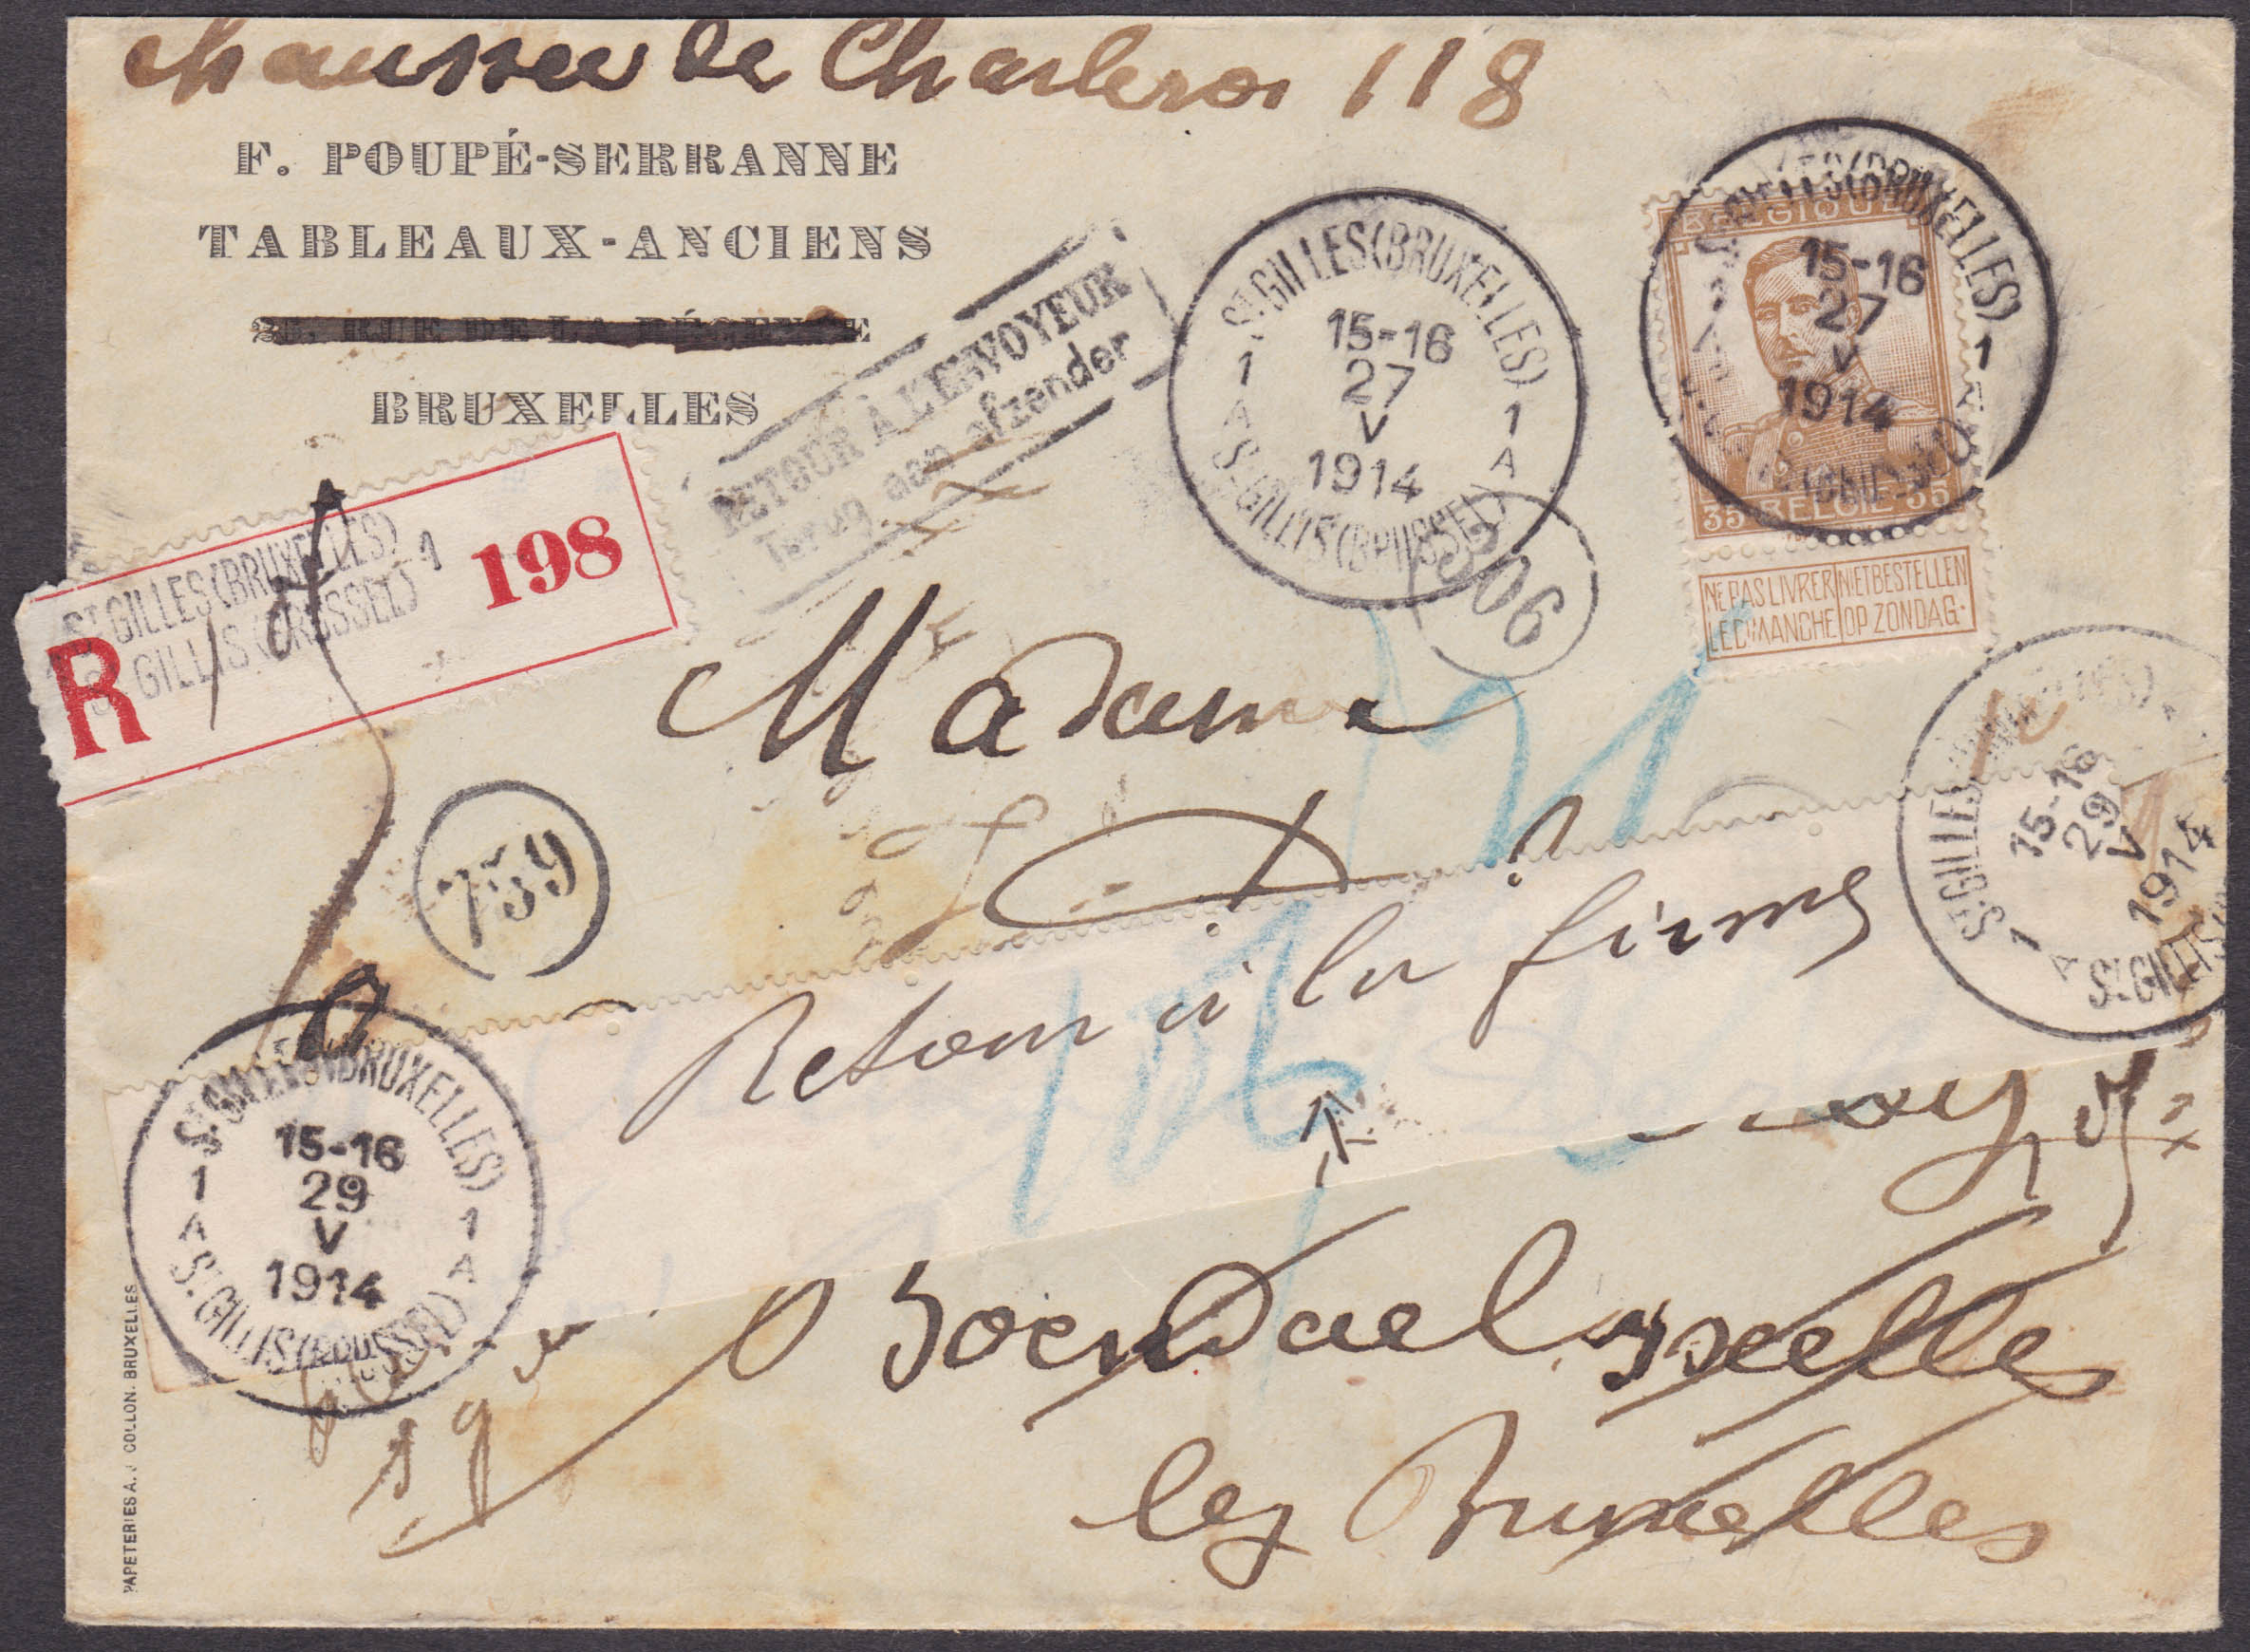 chaussee de Charleroi 118
F. POUPÉ-SERRANNE
TABLEAUX-ANCIENS
RUE DE LA RÉGENCE
BRUXELLES
RETOUR À L'ENVOYEUR
Terug aan afzender
ST GILLES (BRUXELLES) 1
15-16
27
V
1914
1 A
1 A
ST GILLIS (BRUSSEL)
(BRUXELLES) 1
15-16
27
V
1914
BELGIQUE
35 BELGIË 35
NE PAS LIVRER LE DIMANCHE
NIET BESTELLEN OP ZONDAG.
R
ST GILLES (BRUXELLES) 1
ST GILLIS (BRUSSEL)
198
506
Madame
739
Retour à la firme
ST GILLES (BRUXELLES)
15-16
29
V
1914
1 A
ST GILLIS
ST GILLES (BRUXELLES)
15-16
29
V
1914
1 A
1 A
ST GILLIS (BRUSSEL)
Boendael Ixelles
lez Bruxelles
PAPETERIES A. COLLON. BRUXELLES